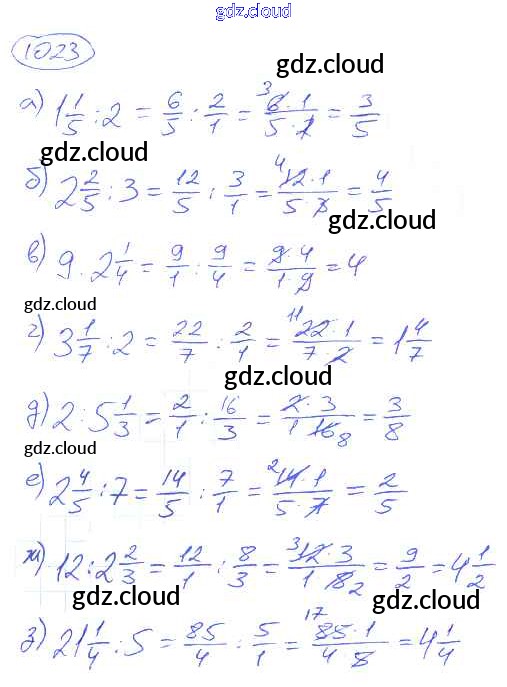 gdz.cloud
1023
gdz.cloud
а) 1 1/5 : 2 = 6/5 : 2/1 = 6·1/5·2 = 3/5
gdz.cloud
б) 2 2/5 : 3 = 12/5 : 3/1 = 12·1/5·3 = 4/5
gdz.cloud
в) 9 · 2 1/4 = 9/1 : 9/4 = 9·4/1·9 = 4
gdz.cloud
г) 3 1/7 : 2 = 22/7 : 2/1 = 22·1/7·2 = 1 4/7
gdz.cloud
д) 2 : 5 1/3 = 2/1 : 16/3 = 2·3/1 16 8 = 3/8
gdz.cloud
е) 2 4/5 : 7 = 14/5 : 7/1 = 14·1/5·7 = 2/5
ж) 12 : 2 2/3 = 12/1 : 8/3 = 12·3/1 8 2 = 9/2 = 4 1/2
gdz.cloud
gdz.cloud
з) 21 1/4 : 5 = 85/4 : 5/1 = 85·1/4·8 = 4 1/4